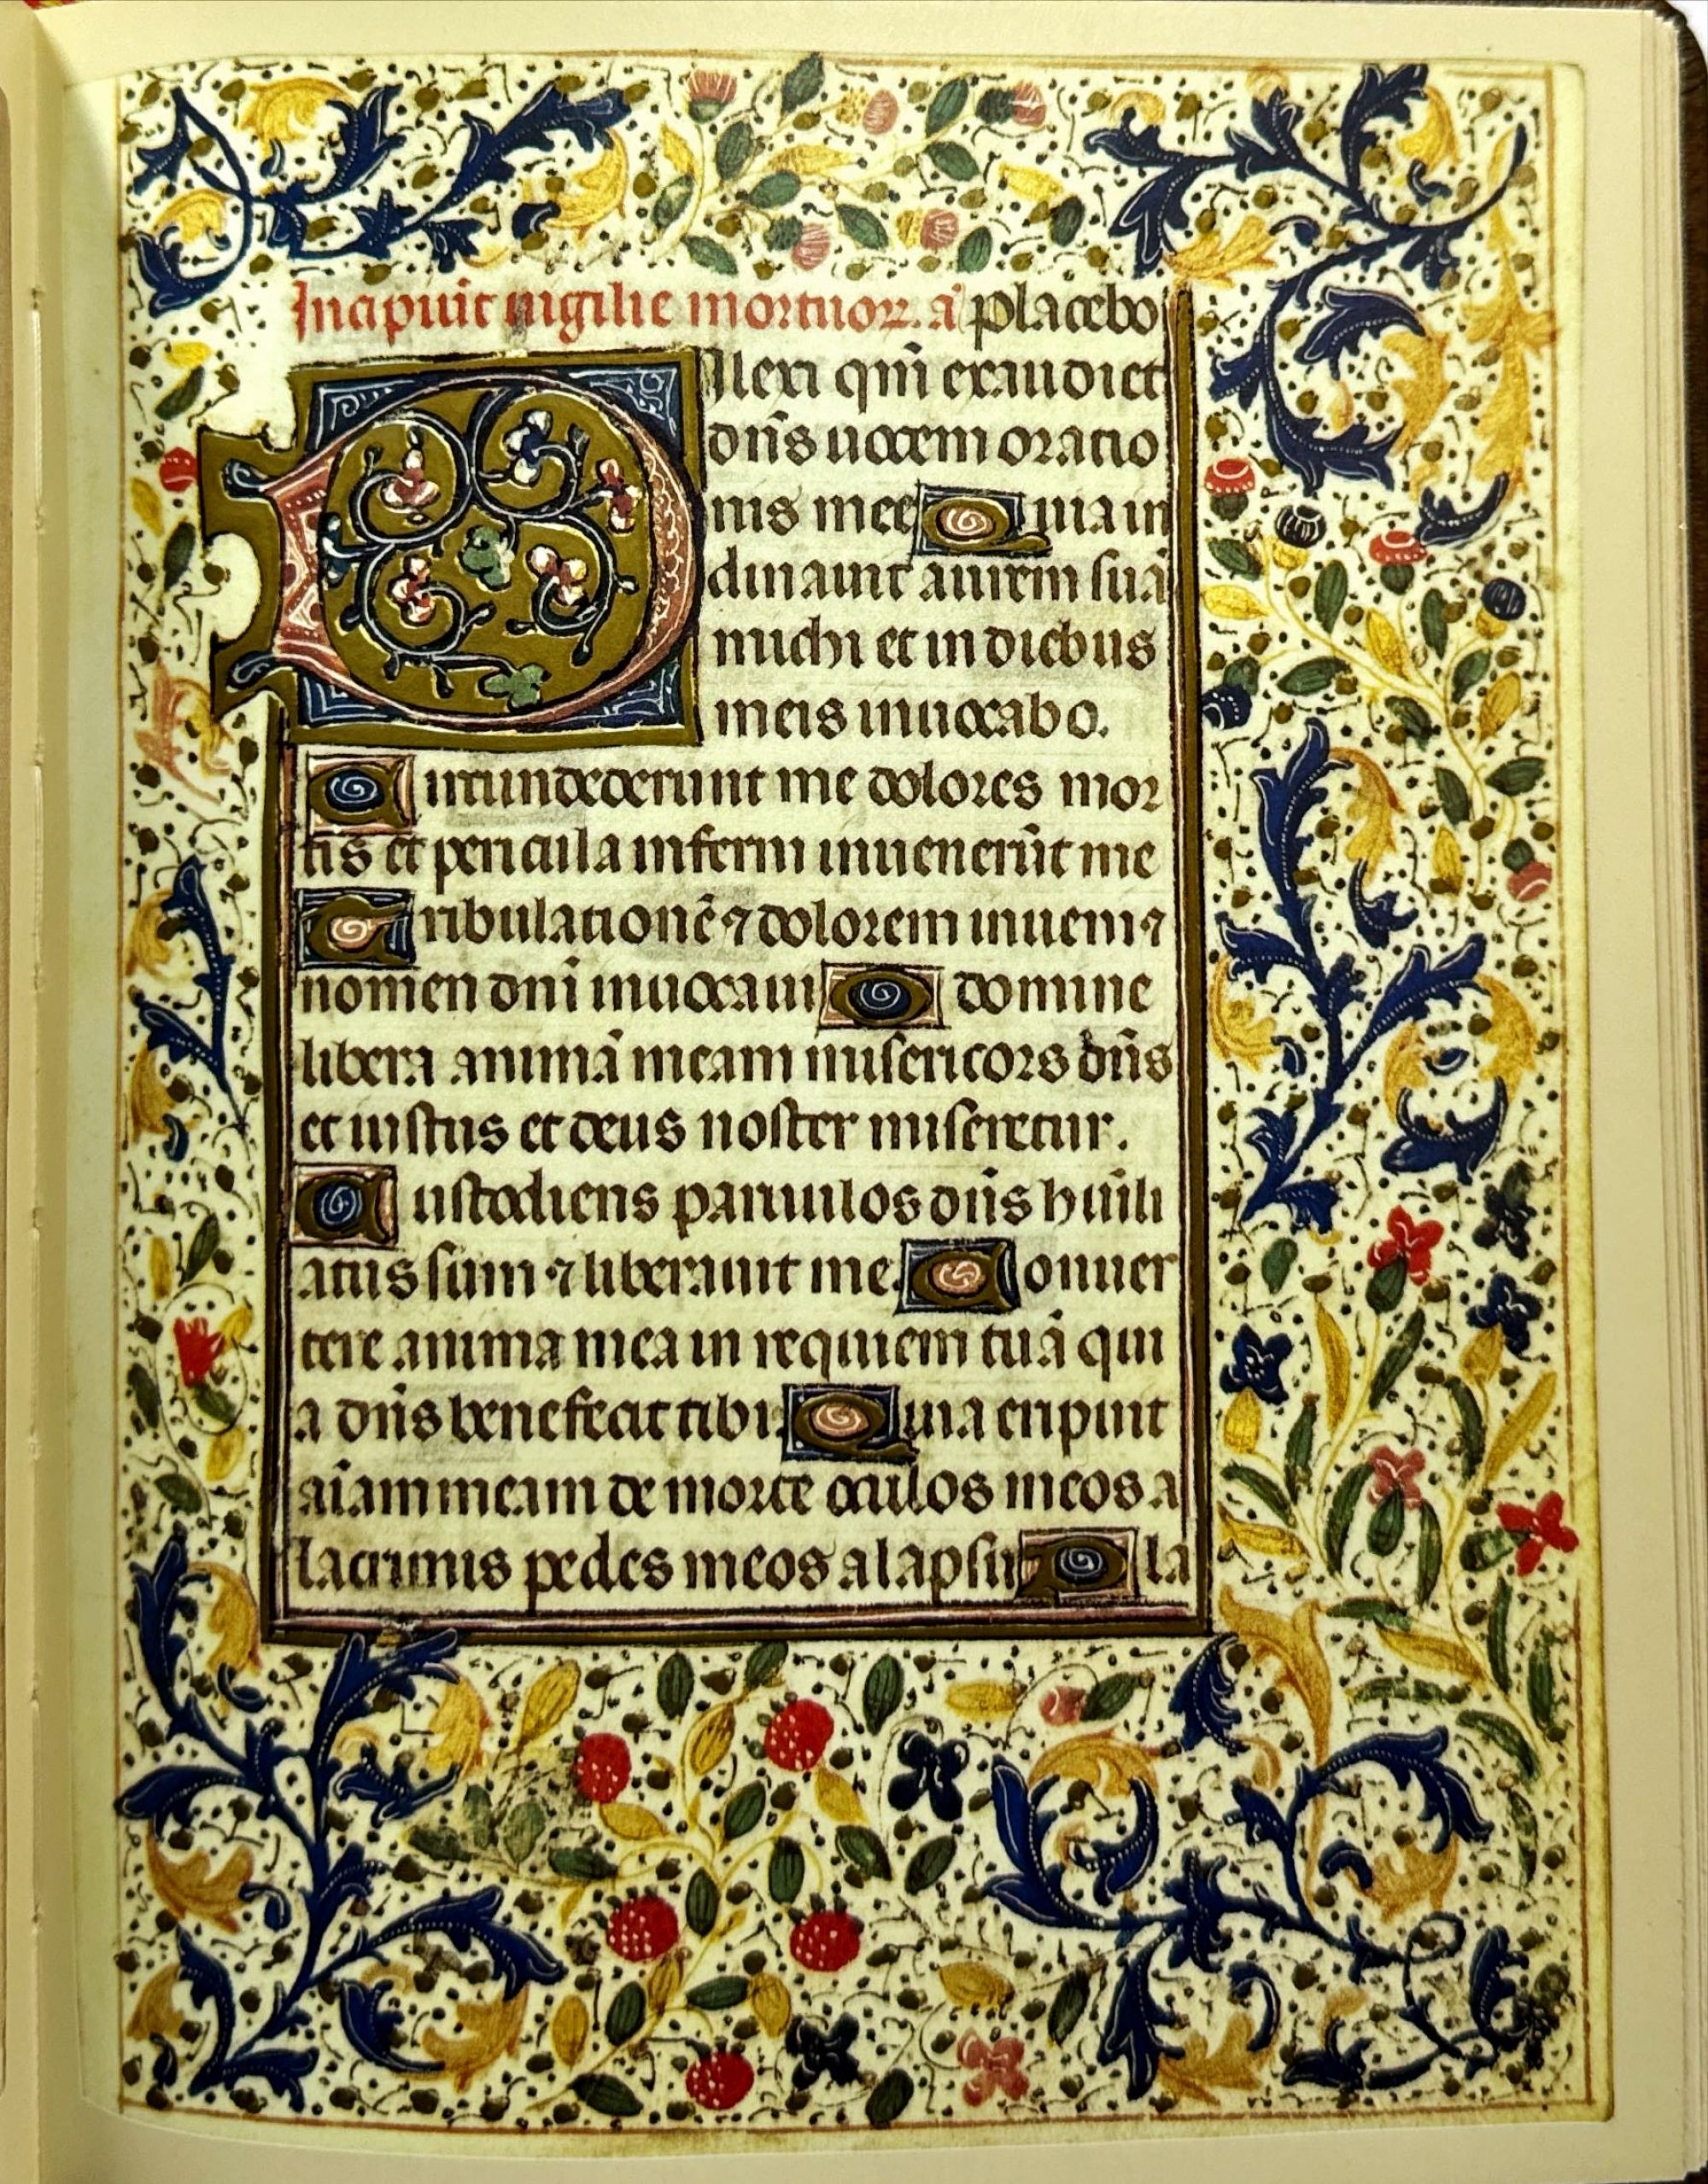 Incipiūt uigilie mortuoꝝ. a᷑ placebo
Dilexi qm̄ exaudiet
dn̄s uocem oratio
nis mee Quia in
clinauit aurem suā
michi et in diebus
meis inuocabo.
Circundederunt me dolores mor
tis et pericula inferni inuenerūt me
Tribulationē ⁊ dolorem inueni ⁊
nomen dn̄i inuocaui O domine
libera animā meam misericors dn̄s
et iustus et deus noster miseretur.
Custodiens paruulos dn̄s hūili
atus sum ⁊ liberauit me. Conuer
tere anima mea in requiem tuā qui
a dn̄s benefecit tibi. Quia eripuit
aīam meam de morte oculos meos a
lacrimis pedes meos a lapsu Pla